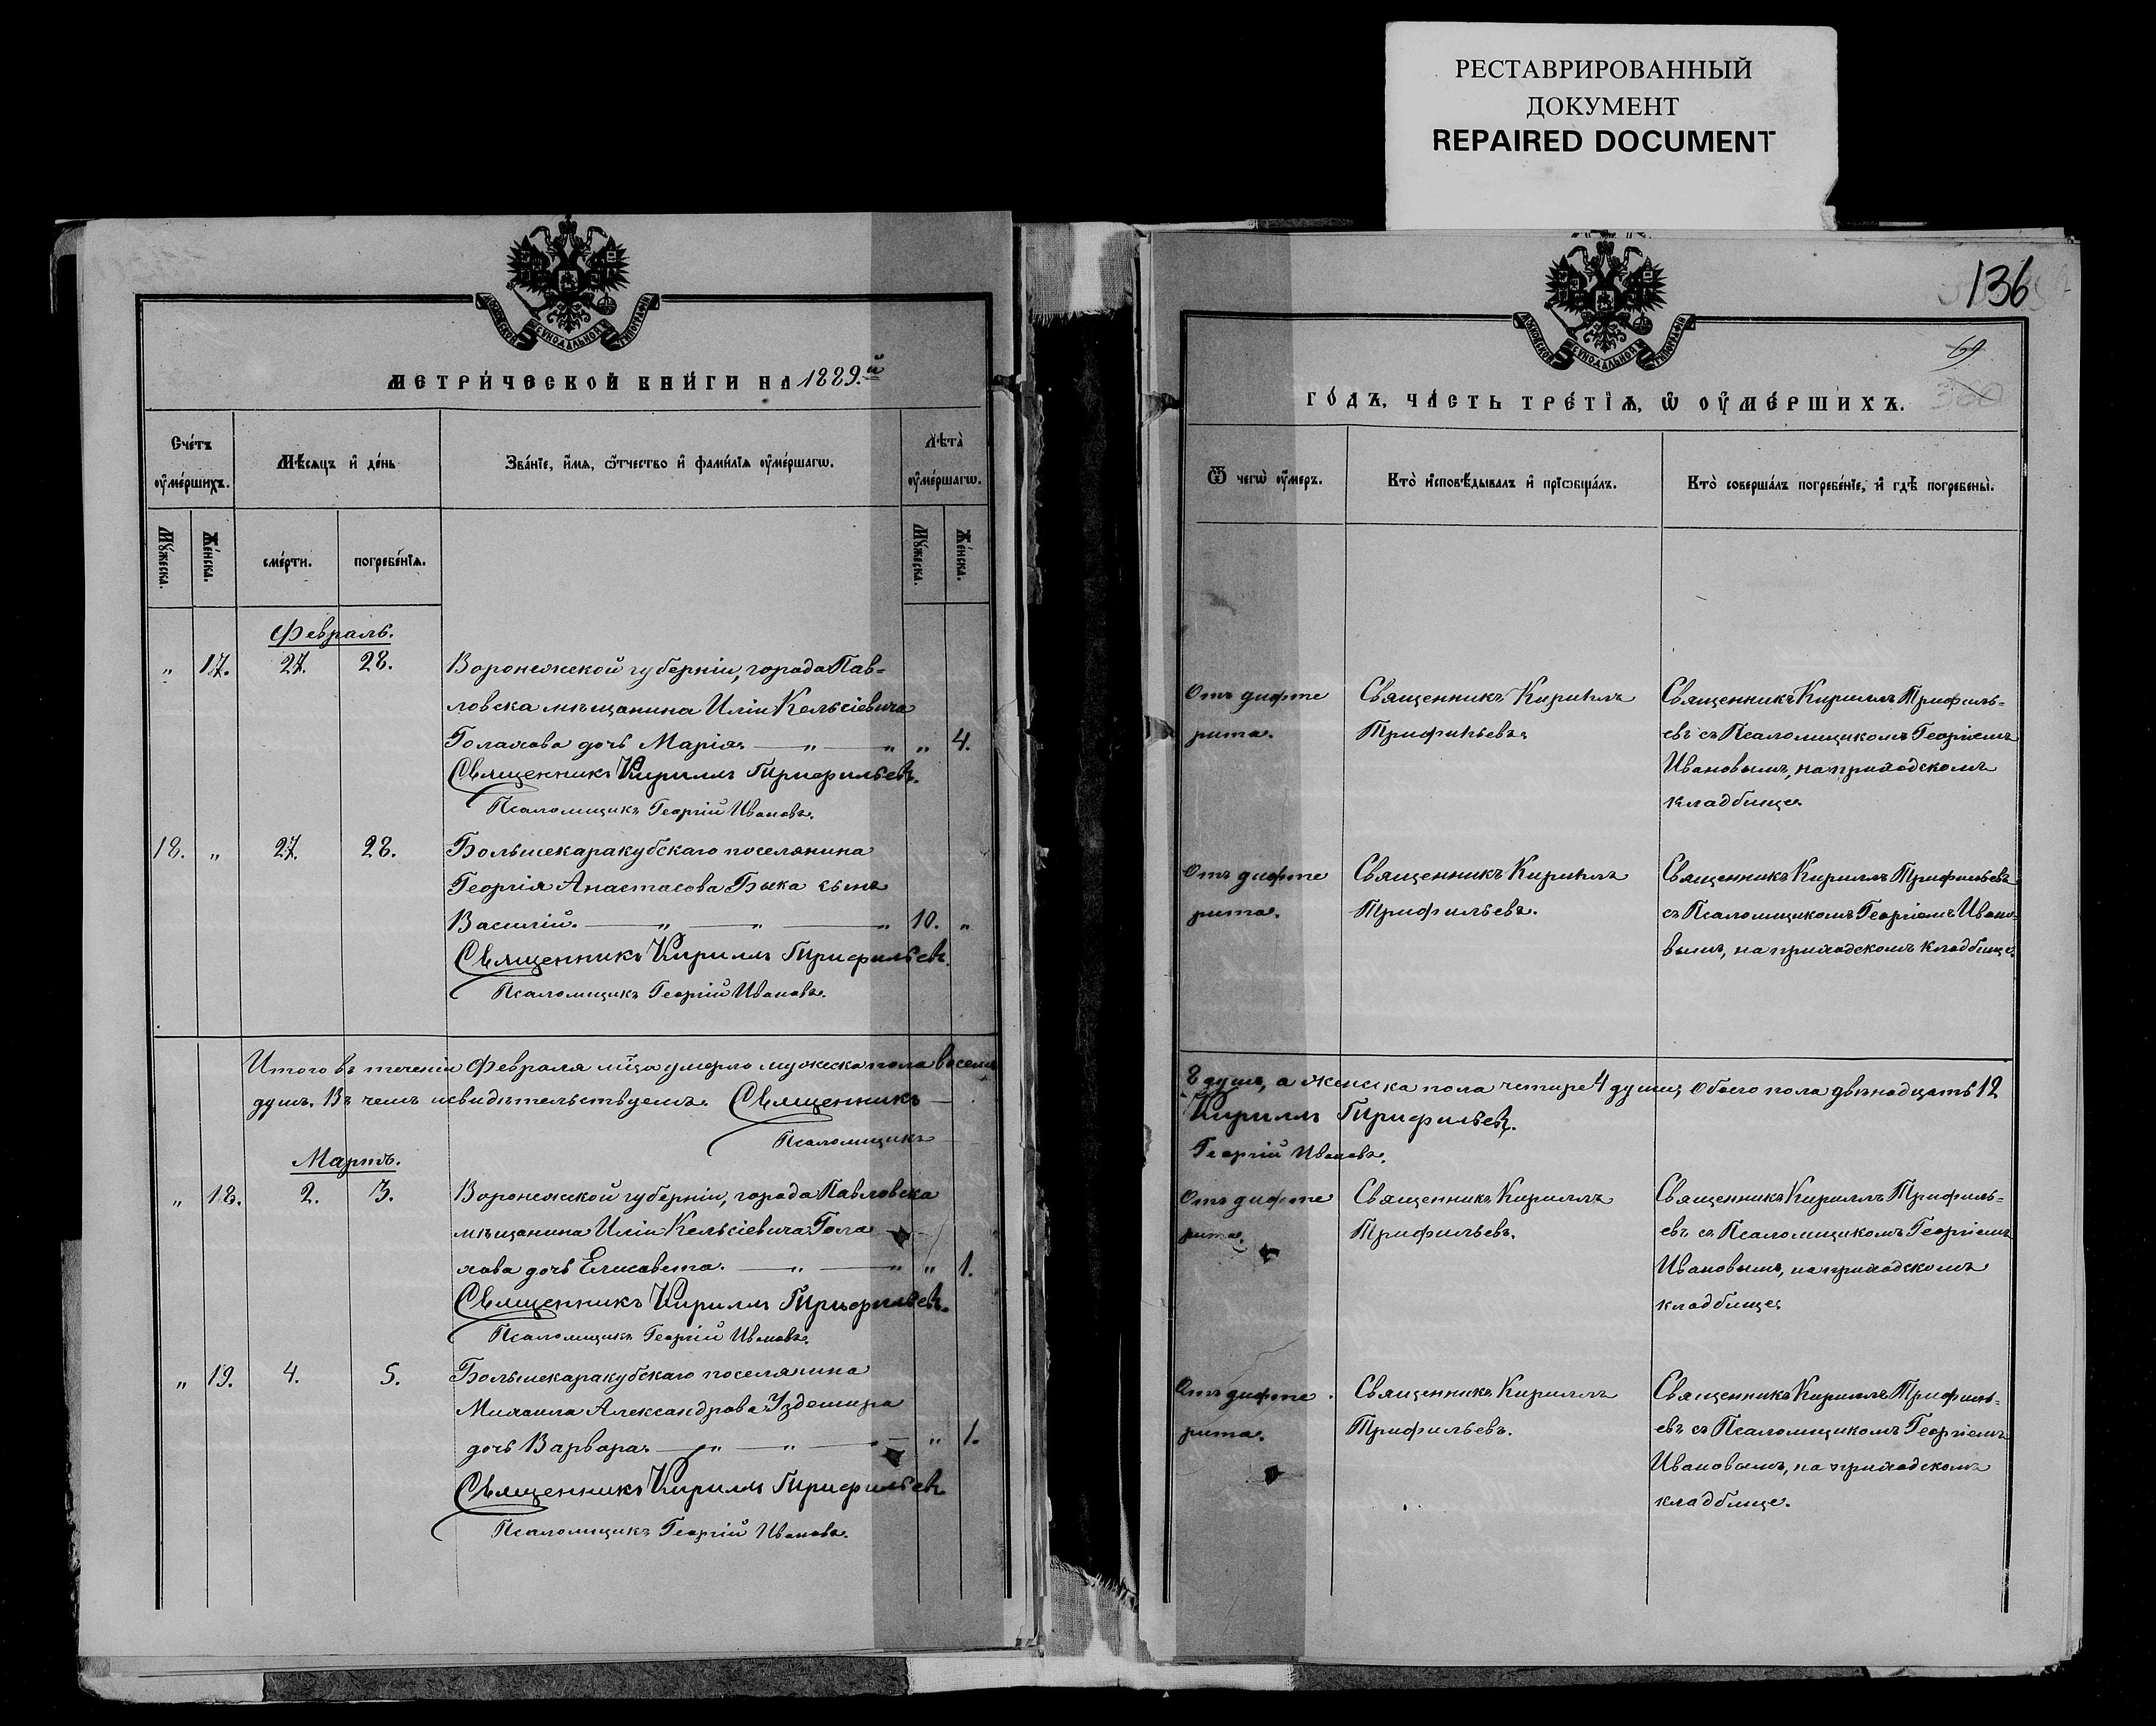 РЕСТАВРИРОВАННЫЙ
ДОКУМЕНТ
REPAIRED DOCUMENT
МОСКОВСКОЙ СѴНОДАЛЬНОЙ ТИПОГРАФІИ
МЕТРИ́ЧЕСКОЙ КНИ́ГИ НА 1889.й
Сче́тъ ᲂу҆ме́ршихъ.
Мѣ́сѧцъ и҆ де́нь
Зва́нїе, и҆́мѧ, ѻ҆́тчество и҆ фами́лїѧ ᲂу҆ме́ршагѡ.
Лѣ́та ᲂу҆ме́ршагѡ.
Мꙋ́жеска.
Же́нска.
сме́рти.
погребе́нїѧ.
Мꙋ́жеска.
Же́нска.
Февраль.
„ 17. 27. 28. Воронежской губерніи, города Пав=
ловска мѣщанина Иліи Кельсіевича
Голахова дочь Марія. — „ — „ „ 4.
Священникъ Кириллъ Трифильевъ.
Псаломщикъ Георгій Ивановъ.
18. „ 27. 28. Большекаракубскаго поселянина
Георгія Анастасова Быка сынъ
Василій. — „ — „ — „ 10. „
Священникъ Кириллъ Трифильевъ.
Псаломщикъ Георгій Ивановъ.
Итого въ теченіи Февраля м-ца умерло мужеска пола восемь
душъ. Въ чемъ и свидѣтельствуемъ. Священникъ —
Псаломщикъ —
Мартъ.
„ 18. 2. 3. Воронежской губерніи, города Павловска
мѣщанина Иліи Кельсіевича Гола
хова дочь Елисавета. — „ — „ „ 1.
Священникъ Кириллъ Трифильевъ.
Псаломщикъ Георгій Ивановъ.
„ 19. 4. 5. Большекаракубскаго поселянина
Михаила Александрова Уздемира
дочь Варвара. — „ — „ — „ 1.
Священникъ Кириллъ Трифильевъ
Псаломщикъ Георгій Ивановъ.
136
69
360
МОСКОВСКОЙ СѴНОДАЛЬНОЙ ТИПОГРАФІИ
ГО́ДЪ, ЧА́СТЬ ТРЕ́ТЇѦ, Ѡ҆ ОУ҆МЕ́РШИХЪ.
Ѿ чегѡ̀ ᲂу҆́меръ.
Кто̀ и҆сповѣ́дывалъ и҆ прїѡбща́лъ.
Кто̀ соверша́лъ погребе́нїе, и҆ гдѣ̀ погребены̀.
Отъ дифте Священникъ Кириллъ Священникъ Кириллъ Трифиль=
рита. Трифильевъ. евъ съ Псаломщикомъ Георгіемъ
Ивановымъ, на приходскомъ
кладбище.
Отъ дифте Священникъ Кириллъ Священникъ Кириллъ Трифильевъ
рита. Трифильевъ. съ Псаломщикомъ Георгіемъ Ивано
вымъ, на приходскомъ кладбище.
8 душъ, а женска пола четыре 4 души, обоего пола двѣнадцать 12
Кириллъ Трифильевъ.
Георгій Ивановъ.
Отъ дифте Священникъ Кириллъ Священникъ Кириллъ Трифиль=
рита. Трифильевъ. евъ съ Псаломщикомъ Георгіемъ
Ивановымъ, на приходскомъ
кладбище.
Отъ дифте Священникъ Кириллъ Священникъ Кириллъ Трифиль=
рита. Трифильевъ. евъ съ Псаломщикомъ Георгіемъ
Ивановымъ, на приходскомъ
кладбище.